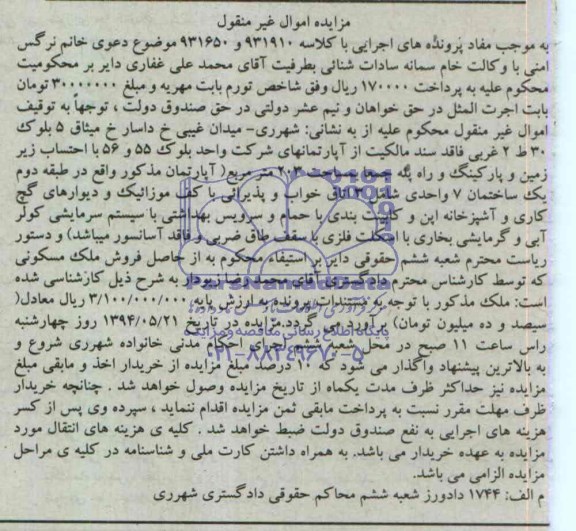 مزایده اموال غیر منقول
به موجب مفاد پرونده های اجرایی با کلاسه ۹۳۱۹۱۰ و ۹۳۱۶۵۰ موضوع دعوی خانم نرگس
امنی با وکالت خام سمانه سادات شنائی بطرفیت آقای محمد علی غفاری دایر بر محکومیت
محکوم علیه به پرداخت ۱۷۰۰۰۰ ریال وفق شاخص تورم بابت مهریه و مبلغ ۳۰۰۰۰۰۰۰ تومان
بابت اجرت المثل در حق خواهان و نیم عشر دولتی در حق صندوق دولت ، توجهاً به توقیف
اموال غیر منقول محکوم علیه از به نشانی: شهرری- میدان غیبی خ داسار خ میثاق ۵ بلوک
۳۰ ط ۲ غربی فاقد سند مالکیت از آپارتمانهای شرکت واحد بلوک ۵۵ و ۵۶ با احتساب زیر
زمین و پارکینگ و راه پله متر مربع( آپارتمان مذکور واقع در طبقه دوم
یک ساختمان ۷ واحدی شامل ۲ اتاق خواب و پذیرائی با کف موزائیک و دیوارهای گچ
کاری و آشپزخانه اپن و کابینت بندی با حمام و سرویس بهداشتی با سیستم سرمایشی کولر
آبی و گرمایشی بخاری با اسکلت فلزی با سقف طاق ضربی و فاقد آسانسور میباشد) و دستور
ریاست محترم شعبه ششم حقوقی دایر بر استیفاء محکوم به از حاصل فروش ملک مسکونی
که توسط کارشناس محترم دادگستری آقای محمد رضا به شرح ذیل کارشناسی شده
است: ملک مذکور با توجه به مستندات پرونده به ارزش پایه ۳/۱۰۰/۰۰۰/۰۰۰ ریال معادل(
سیصد و ده میلیون تومان) برآورد می گردد.مزایده در تاریخ ۱۳۹۴/۰۵/۲۱ روز چهارشنبه
راس ساعت ۱۱ صبح در محل شعبه ششم اجرای احکام مدنی خانواده شهرری شروع و
به بالاترین پیشنهاد واگذار می شود که ۱۰ درصد مبلغ مزایده از خریدار اخذ و مابقی مبلغ
مزایده نیز حداکثر ظرف مدت یکماه از تاریخ مزایده وصول خواهد شد . چنانچه خریدار
ظرف مهلت مقرر نسبت به پرداخت مابقی ثمن مزایده اقدام ننماید ، سپرده وی پس از کسر
هزینه های اجرایی به نفع صندوق دولت ضبط خواهد شد . کلیه ی هزینه های انتقال مورد
مزایده به عهده خریدار می باشد. به همراه داشتن کارت ملی و شناسنامه در کلیه ی مراحل
مزایده الزامی می باشد.
م الف: ۱۷۴۴ دادورز شعبه ششم محاکم حقوقی دادگستری شهرری